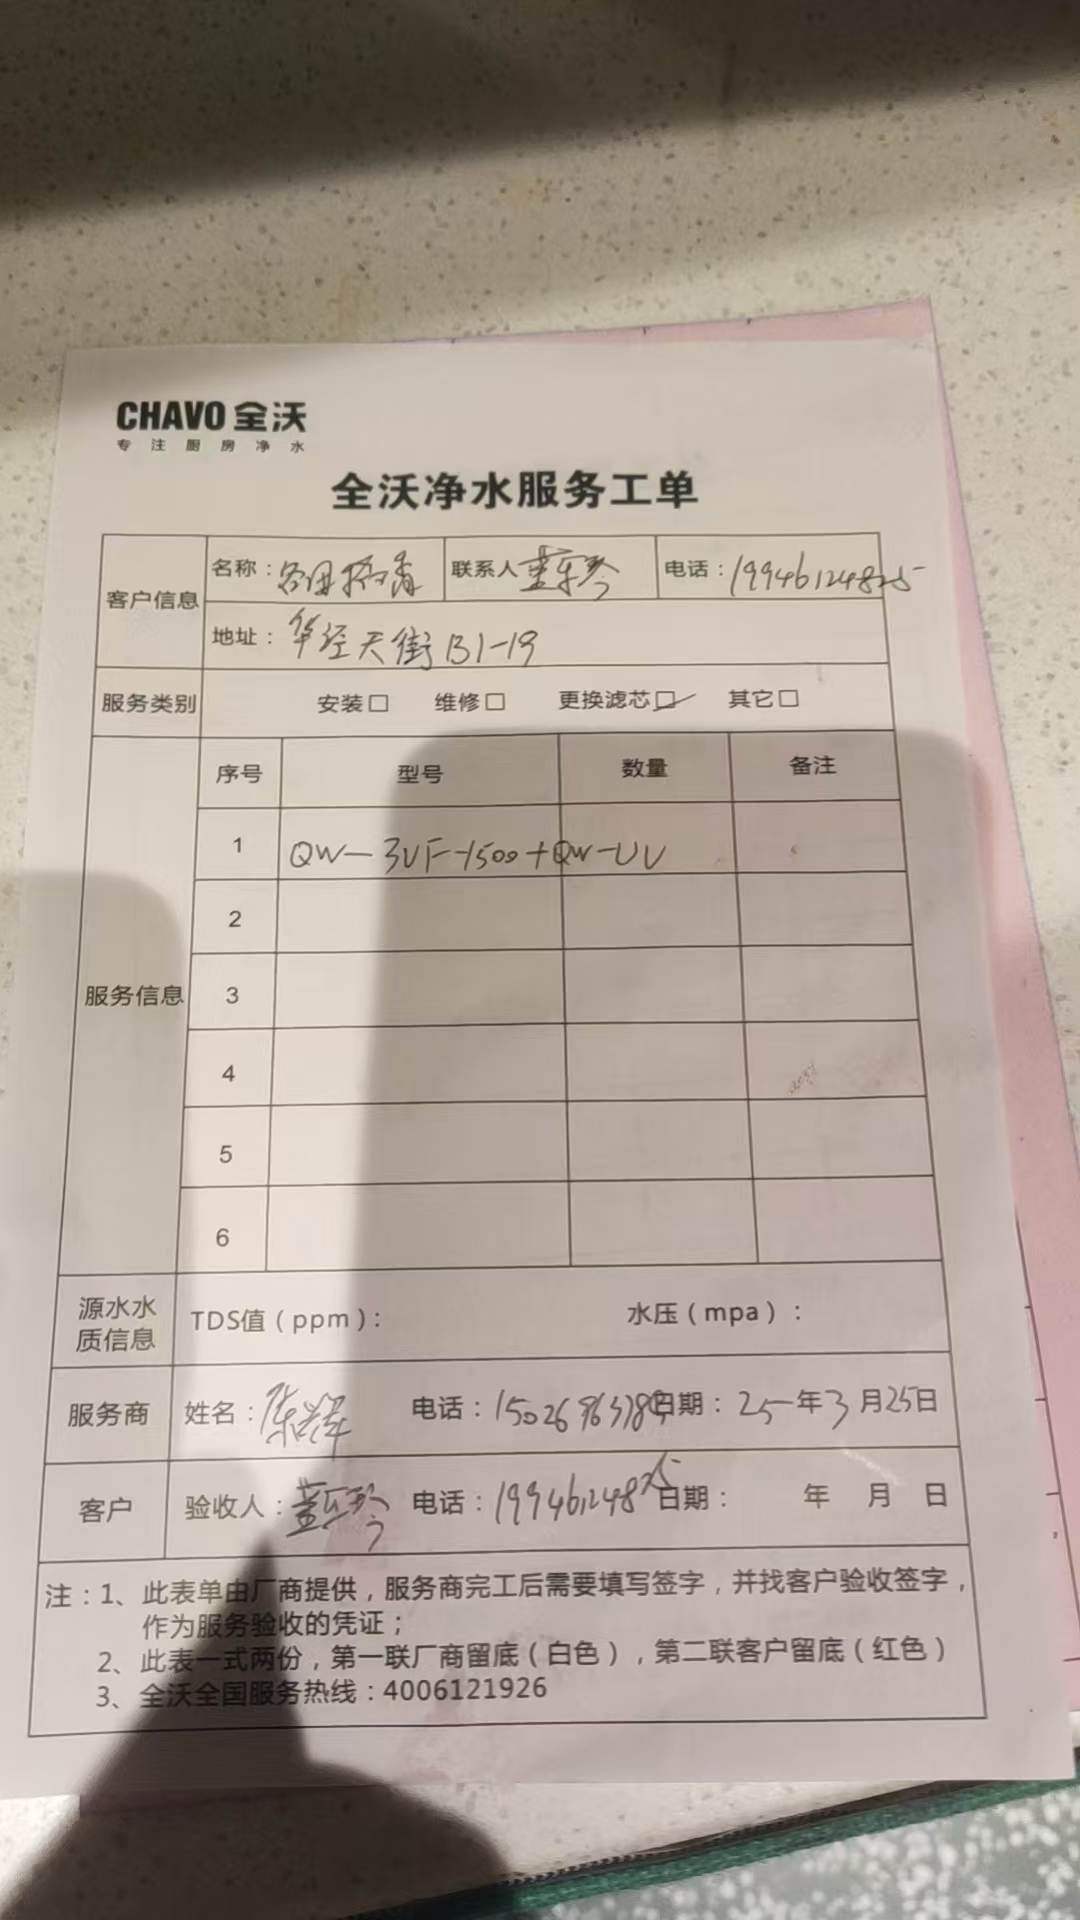 CHAVO 全沃
专注厨房净水
全沃净水服务工单
客户信息
名称：
联系人
电话：19946124825
地址：华经天街B1-19
服务类别
安装□ 维修□ 更换滤芯□✓ 其它□
服务信息
序号 型号 数量 备注
1 QW-3UF-1500+QW-UV
2
3
4
5
6
源水水质信息
TDS值（ppm）： 水压（mpa）：
服务商
姓名：陈辉 电话：日期：25年3月25日
客户
验收人： 电话：19946124825 日期： 年 月 日
注：1、此表单由厂商提供，服务商完工后需要填写签字，并找客户验收签字，
作为服务验收的凭证；
2、此表一式两份，第一联厂商留底（白色），第二联客户留底（红色）
3、全沃全国服务热线：4006121926